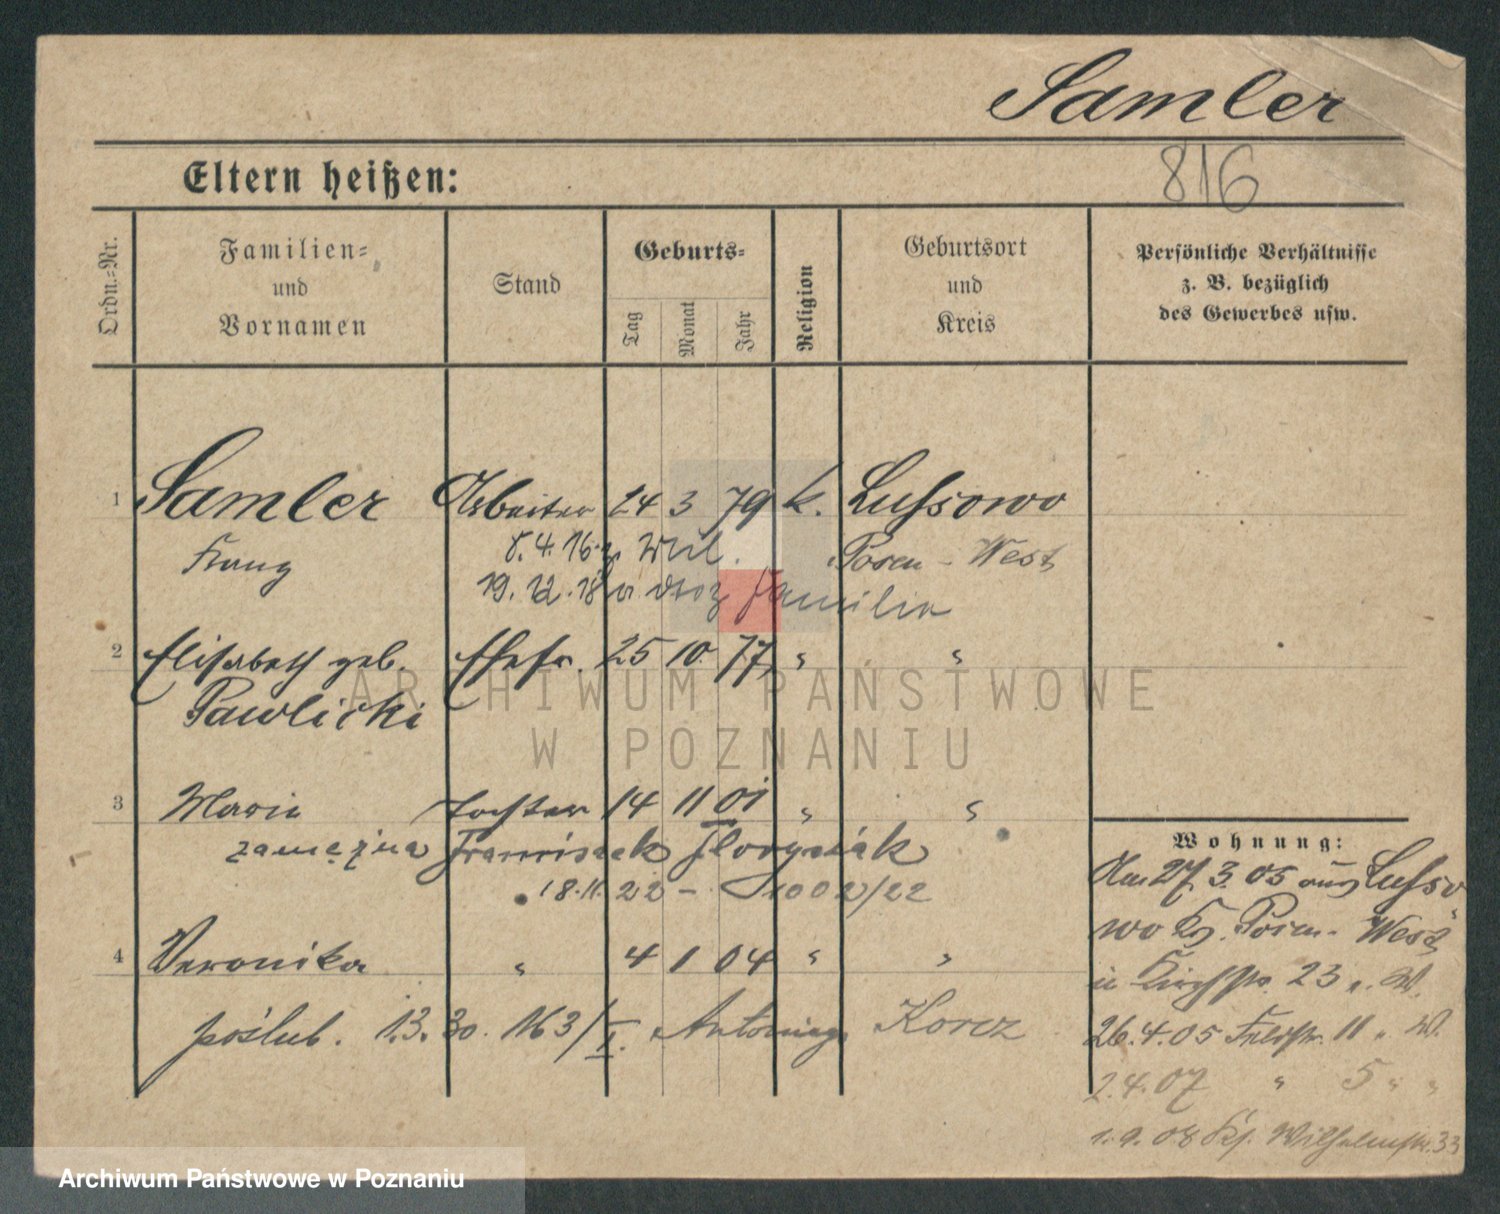 Samler
816
Eltern heißen:
Ordn.-Nr.
Familien-
und
Vornamen
Stand
Geburts-
Tag
Monat
Jahr
Religion
Geburtsort
und
Kreis
Persönliche Verhältnisse
z. B. bezüglich
des Gewerbes usw.
1 Samler Arbeiter 24 3 79 k. Lussowo
Franz 8.4.16 z. Mil. Posen-West
19.12.18 Familie
2 Elisabeth geb. Ehefr. 25 10. 77 " "
Pawlicki
3 Marie Tochter 14 11 01 " "
zamężna Franciszek
18.11.22 - 1002/22
4 Veronika " 4 1 04 " "
poślub. 13. 30. 163/I. Antoniego Korcz
Wohnung:
Am 27.3.05 aus Lusso-
wo Kr. Posen-West
in Kirchstr. 23 b. W.
26.4.05 Feldstr. 11 " W.
2.4.07 " 5 " "
1.9.08 Wilhelmstr. 33
ARCHIWUM PAŃSTWOWE
W POZNANIU
Archiwum Państwowe w Poznaniu